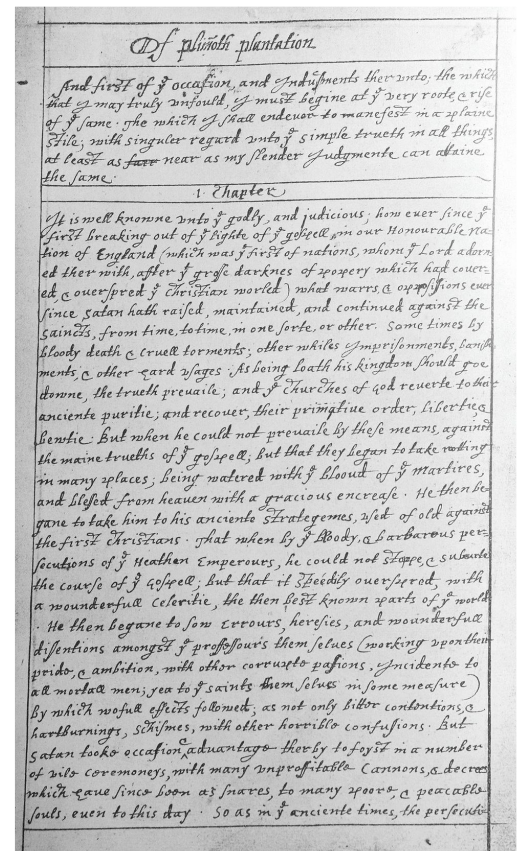 Of plimoth plantation
And first of yͤ occasion, and Indusments ther unto; the which
that I may truly unfould, I must begine at yͤ very roote, & rise
of yͤ same. The which I shall endevor to manefest in a plaine
stile; with singuler regard unto yͤ simple trueth in all things,
at least as farr near as my slender Judgmente can attaine
the same.
1. Chapter
It is well knowne unto yͤ godly, and judicious; how ever since yͤ
first breaking out of yͤ lighte of yͤ gospell, in our Honourable Na-
tion of England (which was yͤ first of nations, whom yͤ Lord adorn-
ed ther with, after yͤ grose darknes of popery which had cover-
ed, & overspred yͤ Christian world) what warrs, & oppossitions ever
since Satan hath raised, maintained, and continued against the
Saincts, from time, to time, in one sorte, or other. Some times by
bloody death & cruell torments; other whiles Imprisonments, banish-
ments, & other hard usages. As being loath his kingdom should goe
downe, the trueth prevaile; and yͤ Churches of God reverte to their
anciente puritie; and recover, their primative order, libertie &
bewtie. But when he could not prevaile by these means, against
the maine trueths of yͤ gospell; but that they began to take rotting
in many places; being watered with yͤ bloud of yͤ Martires,
and blesed from heaven with a gracious encrease. He then be-
gane to take him to his anciente strategemes, used of old against
the first Christians. That when by yͤ bloody, & barbarous per-
secutions of yͤ Heathen Emperours, he could not stoppe, & subuerte
the course of yͤ Gospell; but that it speedily overspred, with
a wounderfull celeritie, the then best known parts of yͤ world
. He then begane to sow errours, heresies, and wounderfull
disentions amongst yͤ proffessours them selves (working upon their
pride, & ambition, with other corrupte passions, Incidente to
all mortall men; yea to yͤ saints them selves in some measure)
by which wofull effects followed; as not only bitter contentions, &
hartburnings, schismes, with other horrible confusions. But
Satan tooke occasion & advantage therby to foyst in a number
of vile ceremoneys, with many unproffitable Cannons, & decrees
which have since been as snares, to many poore, & peacable
souls, even to this day. So as in yͤ anciente times, the persecuti-